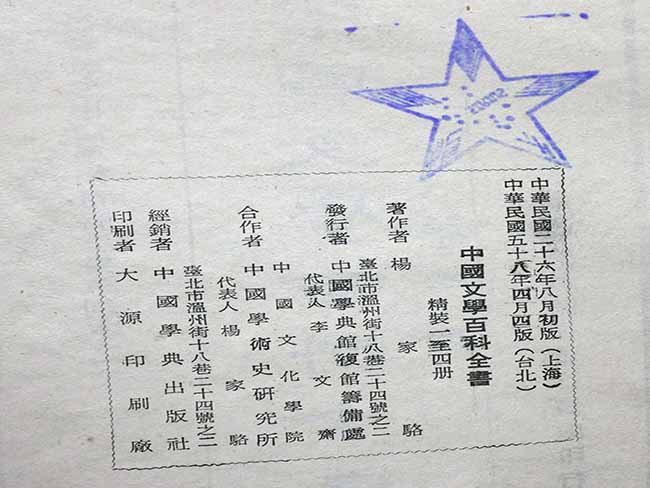 中華民國二十六年八月初版（上海）
中華民國五十八年四月四版（台北）
中國文學百科全書
精裝一至四册
著作者 楊家駱
臺北市溫州街十八巷二十四號之二
發行者 中國學典館復館籌備處
代表人 李文齋
中國文化學院
合作者 中國學術史研究所
代表人 楊家駱
臺北市溫州街十八巷二十四號之二
經銷者 中國學典出版社
印刷者 大源印刷廠